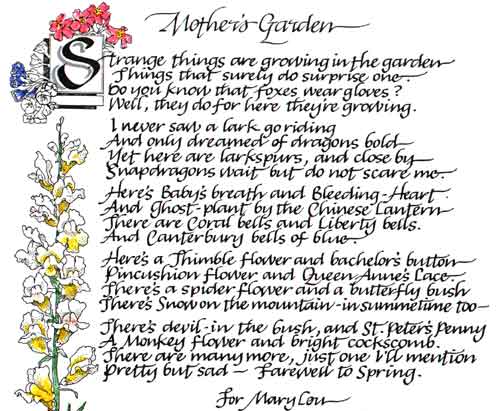 Mother's Garden
Strange things are growing in the garden
Things that surely do surprise one.
Do you know that foxes wear gloves?
Well, they do for here they're growing.
I never saw a lark go riding
And only dreamed of dragons bold
Yet here are larkspurs, and close by
Snapdragons wait but do not scare me.
Here's Baby's breath and Bleeding-Heart
And Ghost-plant by the Chinese Lantern
There are Coral bells and Liberty bells.
And Canterbury bells of blue.
Here's a Thimble flower and bachelor's button
Pincushion flower and Queen Anne's Lace.
There's a spider flower and a butterfly bush
There's Snow on the mountain-in summertime too-
There's devil-in the bush, and St. Peter's Penny
A Monkey flower and bright cockscomb.
There are many more, just one I'll mention
Pretty but sad - Farewell to Spring.
For Mary Lou